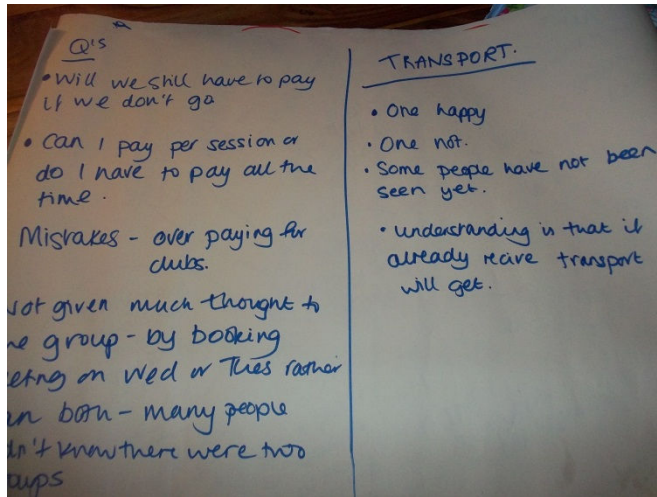 Q's
• Will we still have to pay
if we don't go
• Can I pay per session or
do I have to pay all the
time.
Mistakes - over paying for
clubs.
Not given much thought to
group - by booking
on Wed or Tues rather
both - many people
know there were two
TRANSPORT.
• One happy
• One not.
• Some people have not been
seen yet.
• understanding is that if
already recive transport
will get.